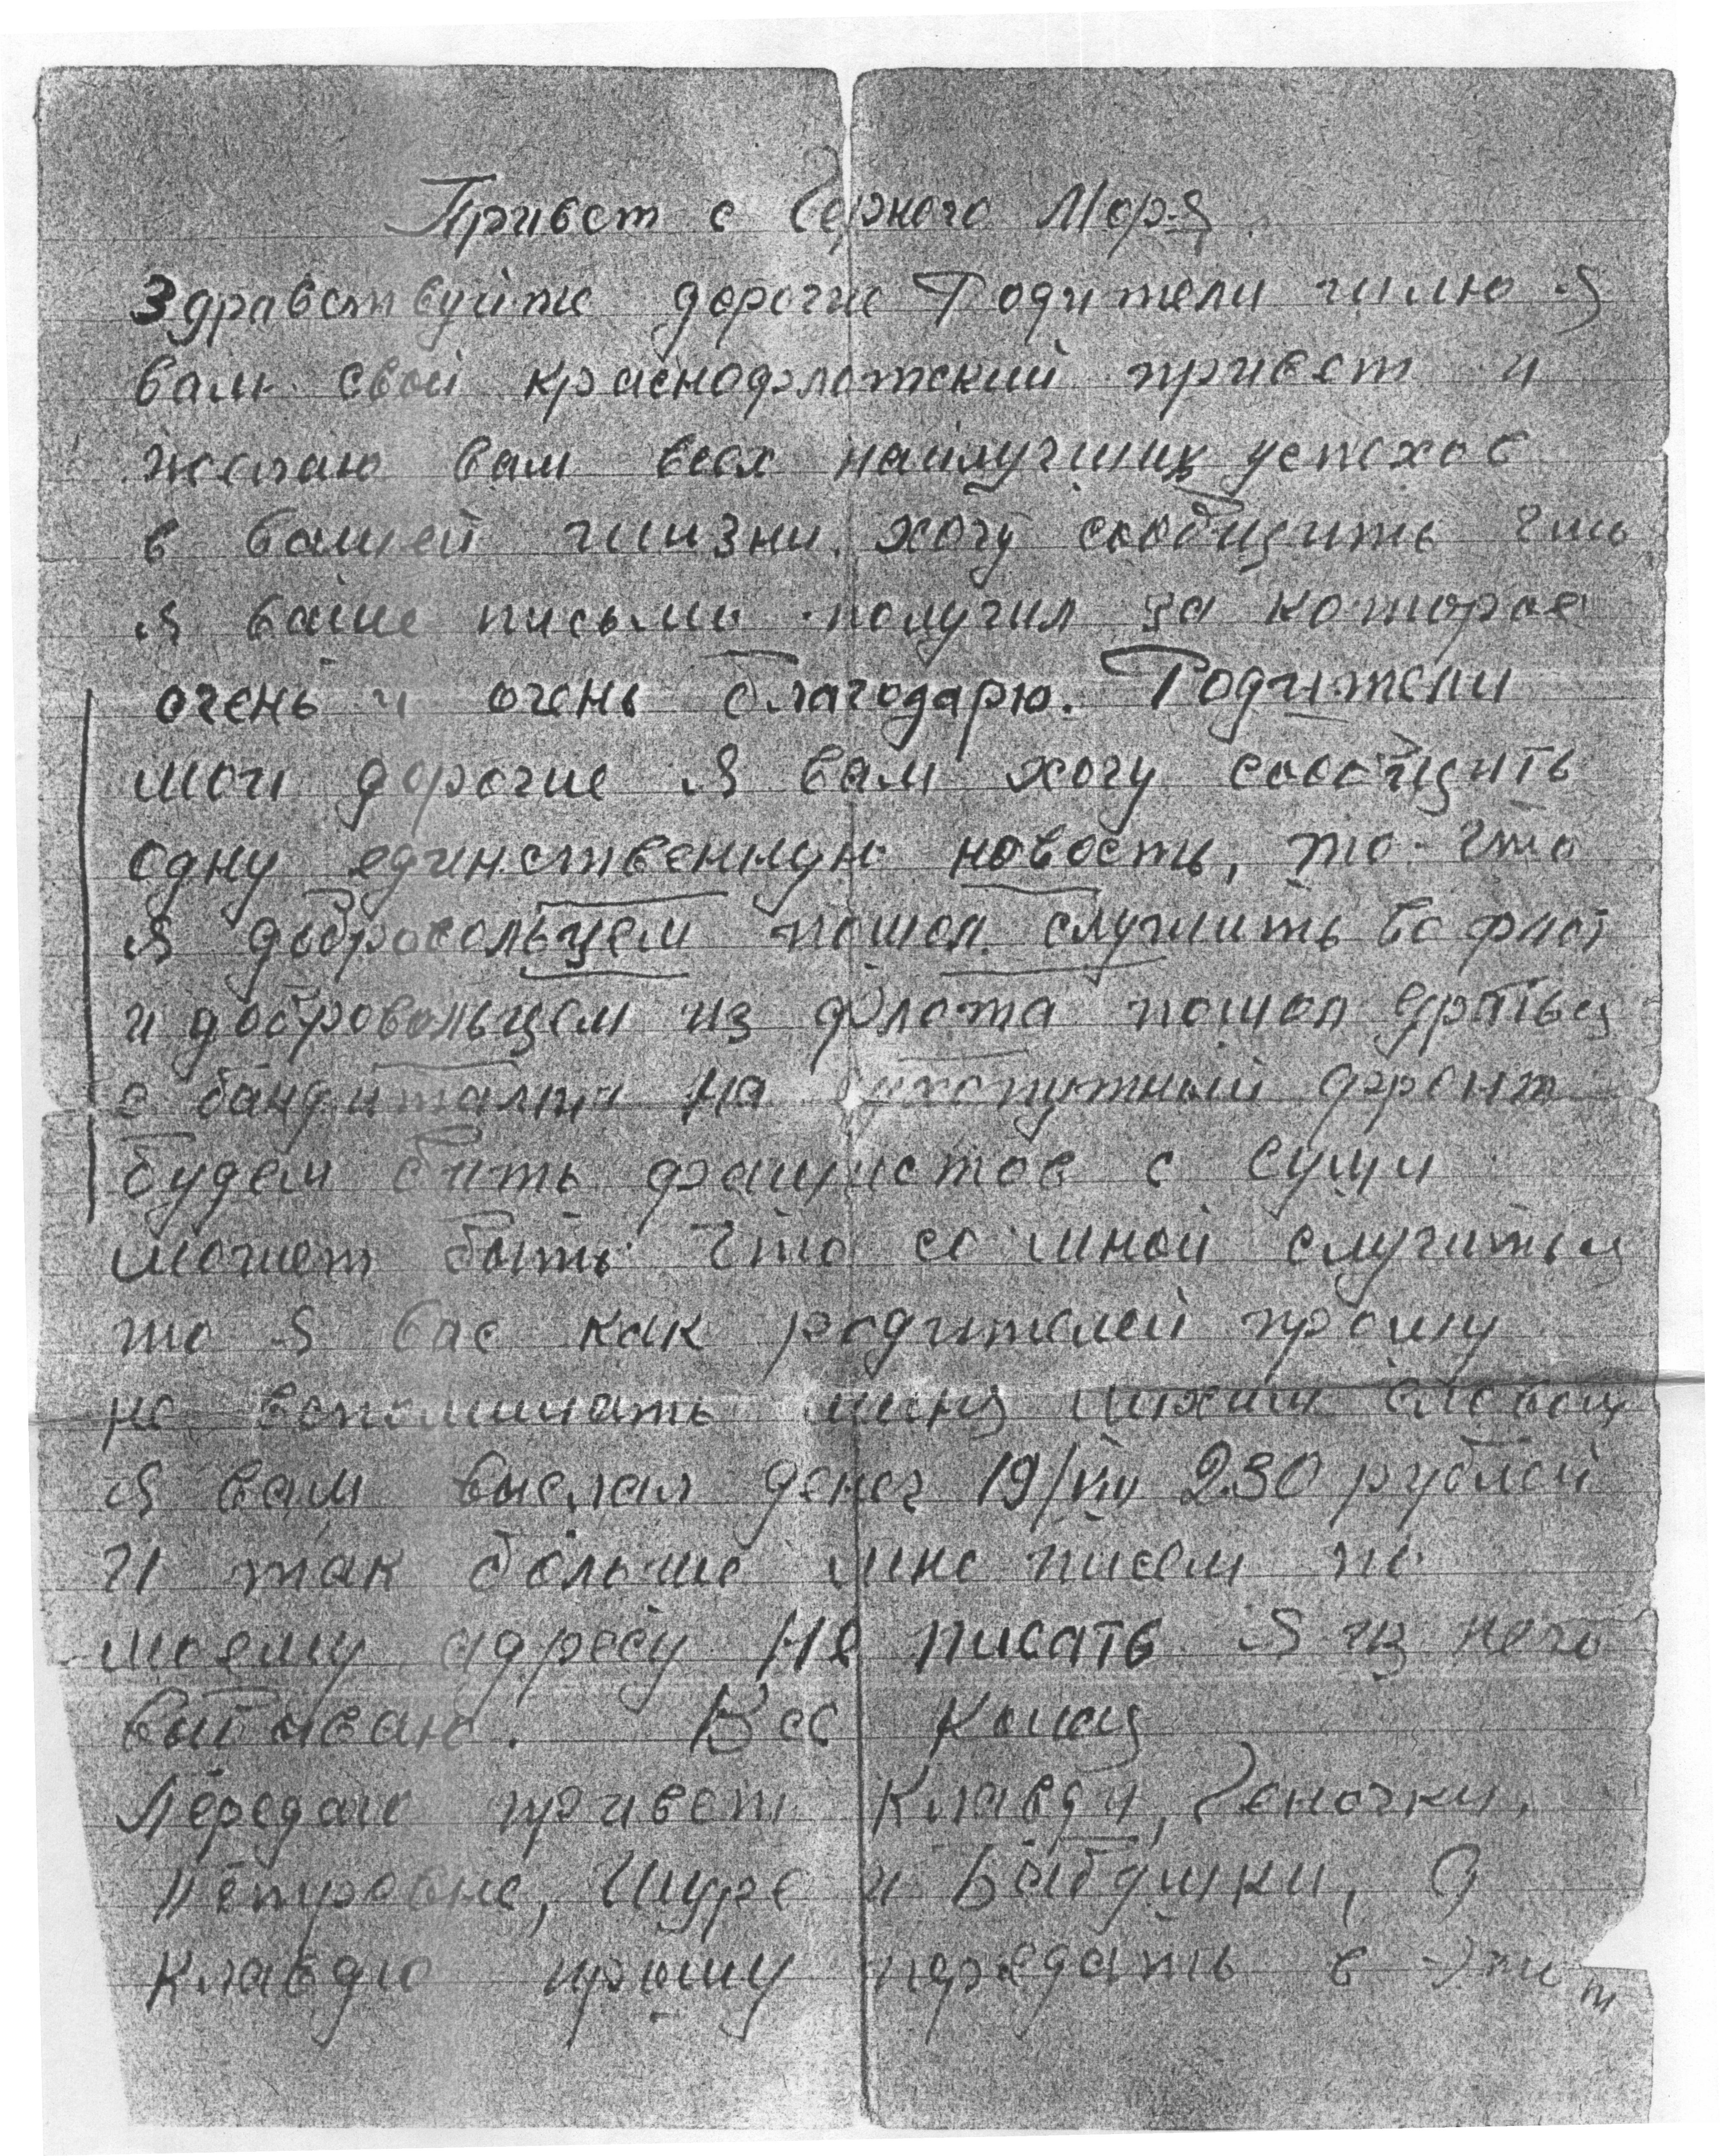 Привет с Черного Моря.
Здравствуйте дорогие Родители шлю я
вам свой краснофлотский привет и
желаю вам всех наилучших успехов
в вашей жизни. хочу сообщить что
я ваше письмо получил за которое
очень и очень благодарю. Родители
мои дорогие я вам хочу сообщить
одну единственную новость, то что
я добровольцем пошол служить во флот
и добровольцем из флота пошол драться
с бандитами на сухопутный фронт
будем бить фашистов с сущи
может быть что со мной случиться
то я вас как родителей прошу
не вспоминать меня лихим словом
я вам выслал денег 19/VIII 230 рублей
И так больше мне писем по
моему адресу не писать я из него
выбываю. Все Конец
Передаю привет Клавди, Геночки,
Петровне, Шуре и Бабушки, А
Клавдю прошу передать в этим